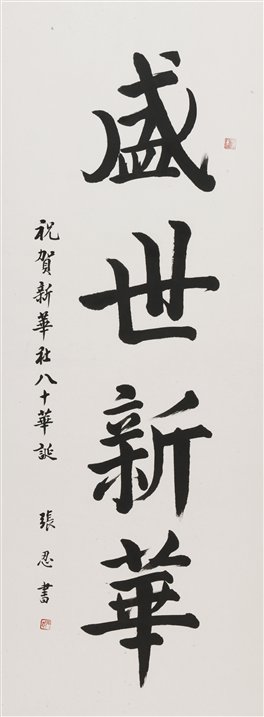 盛世新華
祝賀新華社八十華誕
張忍書